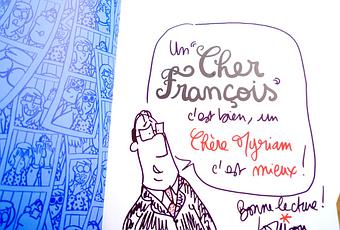 Un "Cher
François"
c'est bien, un
Chère Myriam
c'est mieux !
Bonne lecture !